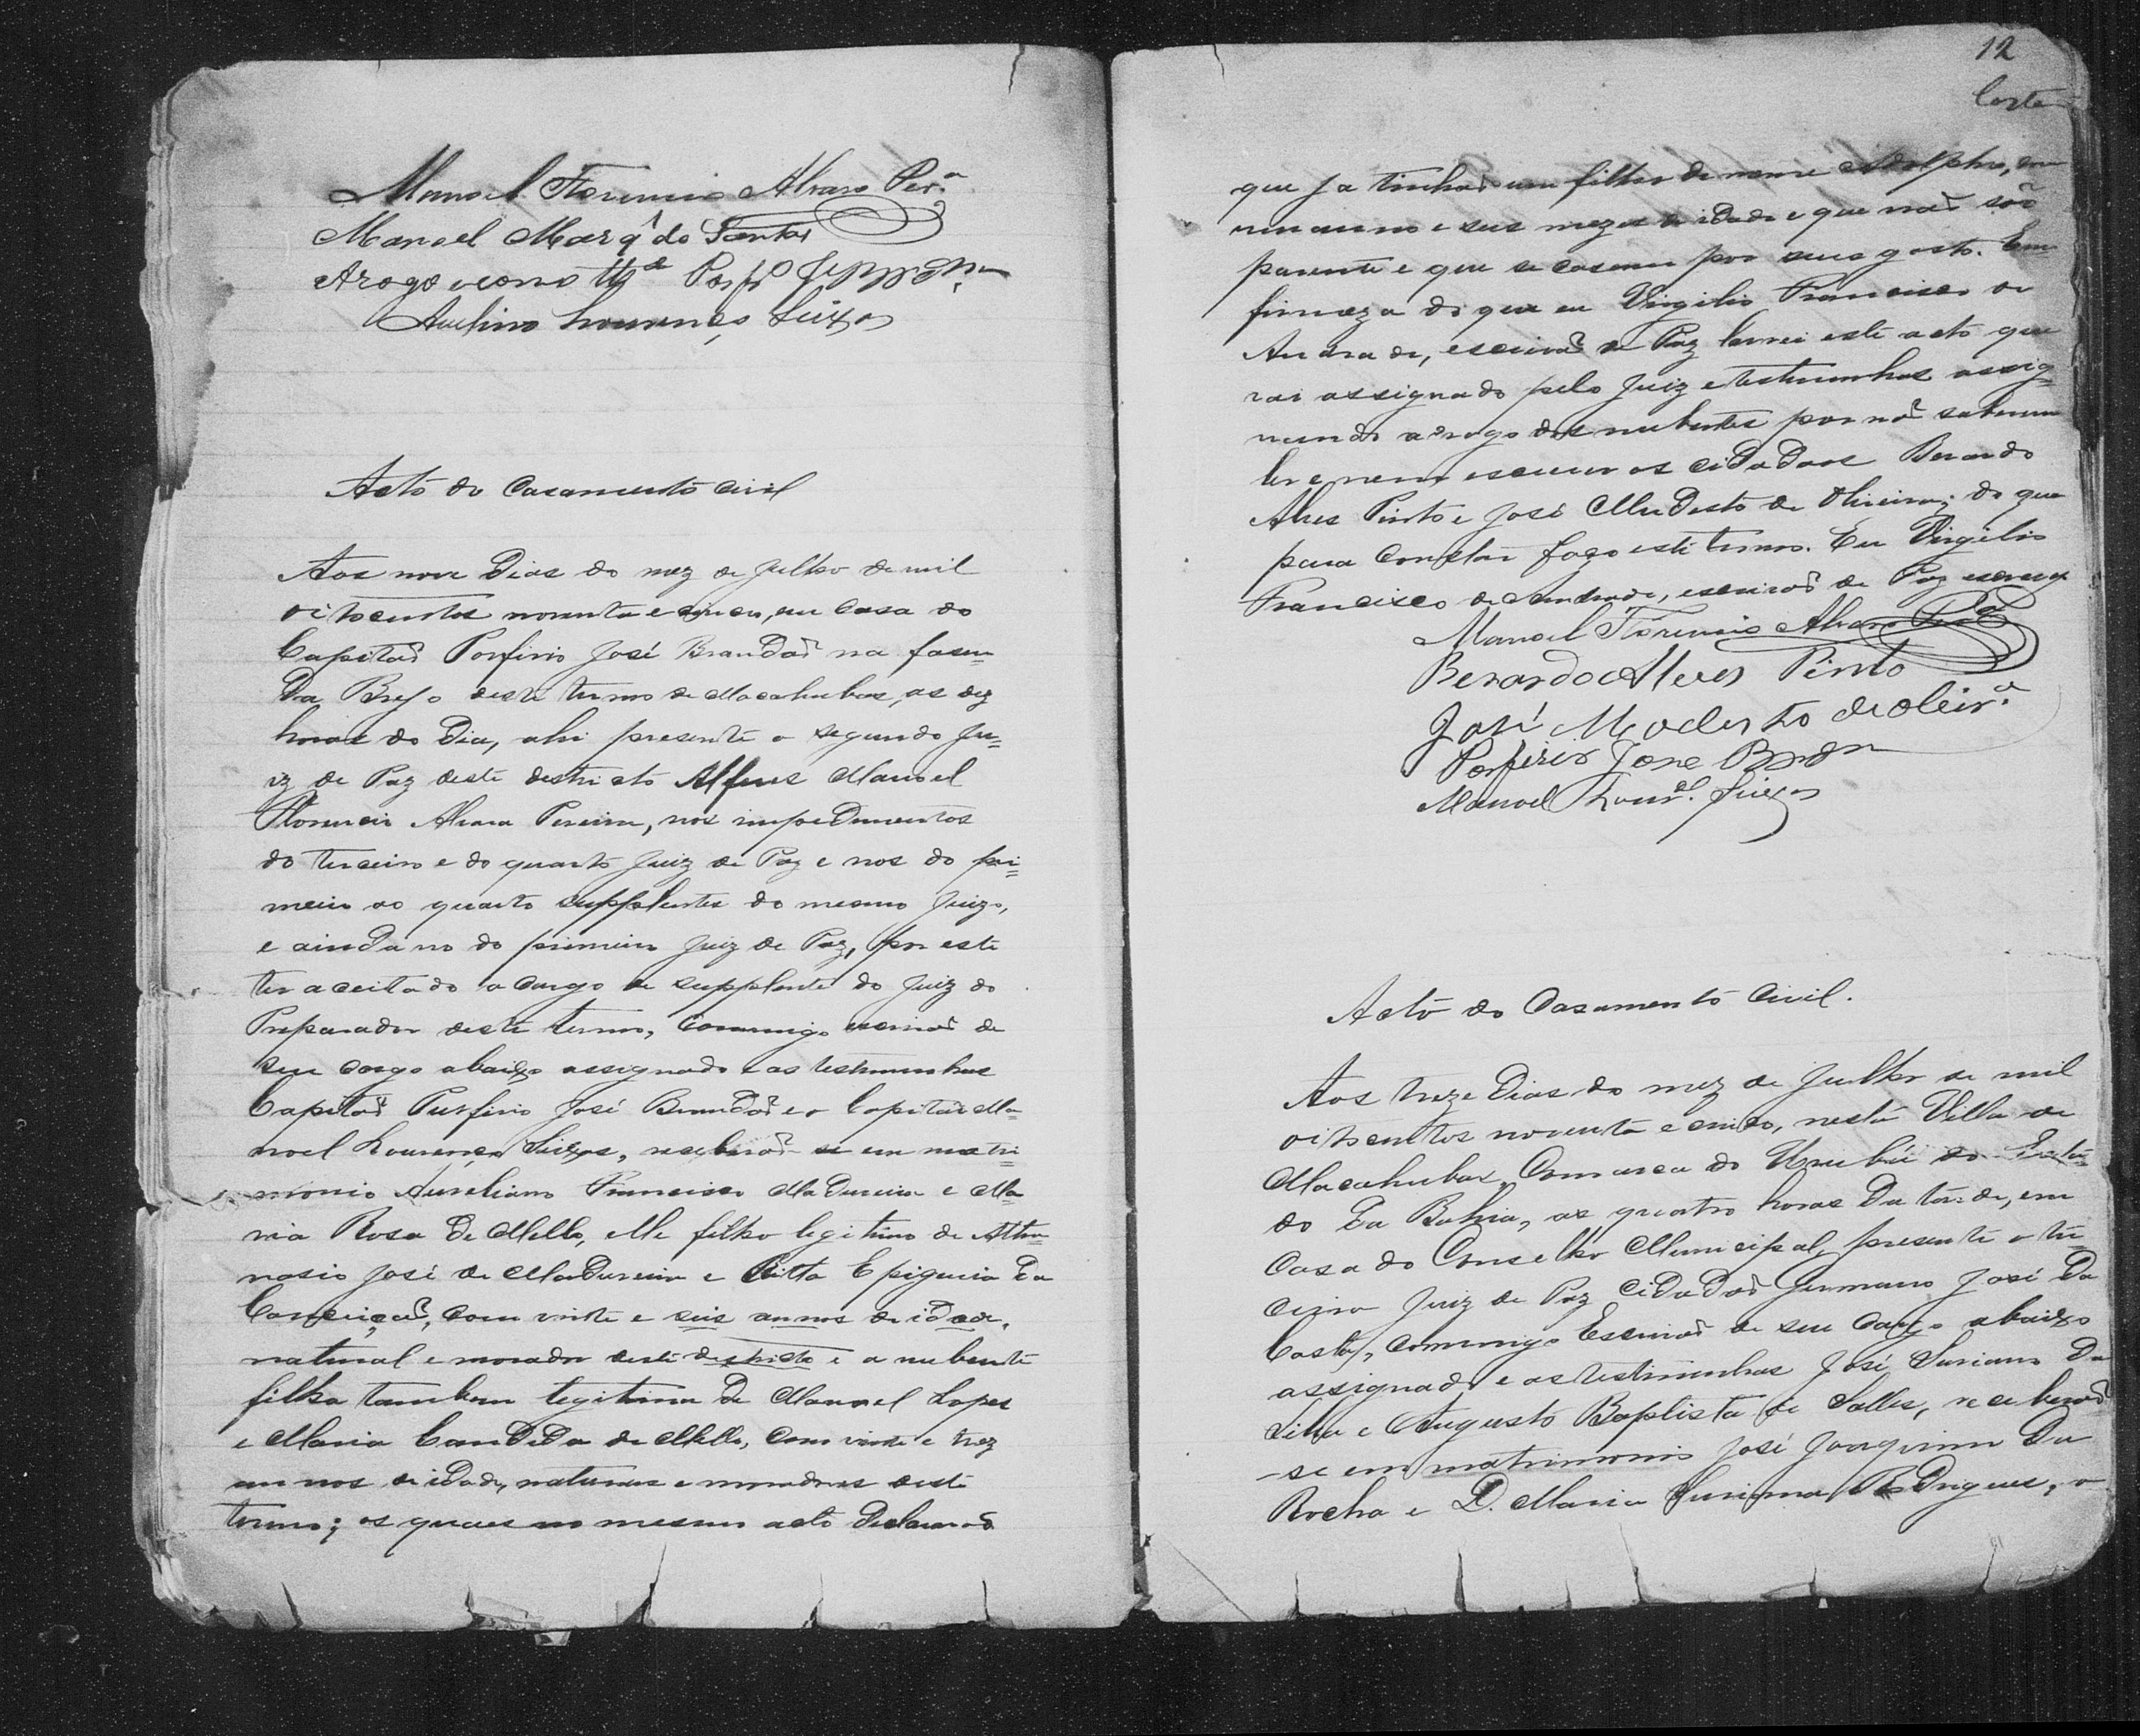 Manoel Florencio Alvaro Per.ª
Manoel Marq. do Santos
Arogo e como tt.ª Porf.º
Avelino Lourenço Seixas
Acto do Casamento Civil
Aos nove dias do mez de Julho de mil
oitocentos noventa e cinco, em casa do
Capitão Porfirio José Brandão na fasen-
da Brejo deste termo de Macahubas, as dez
horas do dia, ahi presente o segundo Ju=
iz de Paz deste destricto Alferes Manoel
Florencio Alvaro Pereira, nos impedimentos
do terceiro e do quarto Juiz de Paz e nos do pri=
meiro ao quarto supplentes do mesmo Juizo,
e ainda no do primeiro Juiz de Paz, por este
ter aceitado o cargo de supplente do Juiz do
Preparador deste termo, commigo escrivão de
seu cargo abaixo assignado e as testemunhas
Capitão Porfirio José Brandão e o Capitão Ma=
noel Lourenço Seixas, receberão-se em matri=
monio Aureliano Francisco Madureira e Ma=
ria Rosa de Mello, elle filho legitimo de Atha=
nasio José de Madureira e Ritta Epigenia da
Conceição, com vinte e seis annos de idade,
natural e morador deste destricto e a nubente
filha tambem legitima de Manoel Lopes
e Maria Candida de Mello, com vinte e trez
annos de idade, naturaes e moradores deste
termo; os quaes no mesmo acto declararão
12
Costa
que ja tinhão um filho de nome Adolpho, com
um anno e seis mezes de idade e que não são
parente e que se casavam por seus gosto. Em
firmeza do que eu Virgilio Francisco de
Andrade, escrivão de Paz lavrei este acto que
vai assignado pelo Juiz e testemunhas assig=
nando a rogo dos nubentes por não saberem
ler e nem escrever os cidadãos Berardo
Alves Pinto e José Modesto de Oliveira; do que
para constar faço este termo. Eu Virgilio
Francisco de Andrade, escrivão de Paz escrevi
Manoel Florencio Alvaro Per.ª
Berardo Alves Pinto
José Modesto de Oleir.ª
Porfirio Jose
Manoel Lour.ço Seixas
Acto do Casamento Civil.
Aos treze dias do mez de Julho de mil
oitocentos noventa e cinco, nesta Villa de
Macahubas, Comarca do Urubú do Esta=
do da Bahia, as quatro horas da tarde, em
Casa do Conselho Municipal, presente o ter=
ceiro Juiz de Paz cidadão Germano José da
Costa, commigo Escrivão de seu cargo abaixo
assignado e as testemunhas José Suriano da
Silva e Augusto Baptista de Salles, receberão
-se em matrimonio José Joaquim da
Rocha e D. Maria Rodrigues, o